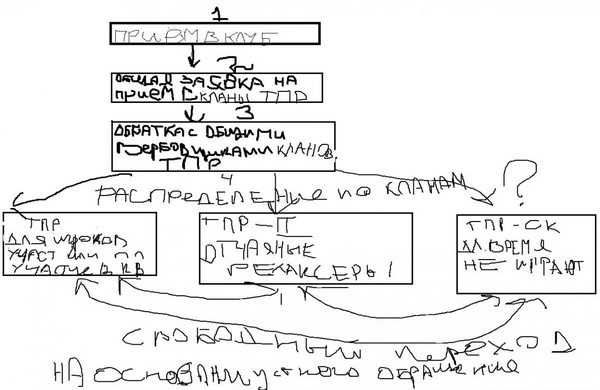 1
ПРИЕМ В КЛУБ
2
ОБЩАЯ ЗАЯВКА НА
ПРИЕМ В КЛАНЫ ТПР
3
ОБРАТКА С ОБЩИМИ
ВЕРБОВЩИКАМИ КЛАНОВ
ТПР
4
РАСПРЕДЕЛЕНИЕ ПО КЛАНАМ
?
ТПР
ДЛЯ ИГРОКОВ
УЧАСТ ИЛИ
УЧАСТИЕ В КВ
ТПР-П
ОТЧАЯНЫЕ
РЕЛАКСЕРЫ
ТПР-СК
ДЛ. ВРЕМЯ
НЕ ИГРАЮТ
СВОБОДНЫЙ ПЕРЕХОД
НА ОСНОВАНИИ УСТНОГО ОБРАЩЕНИЕ